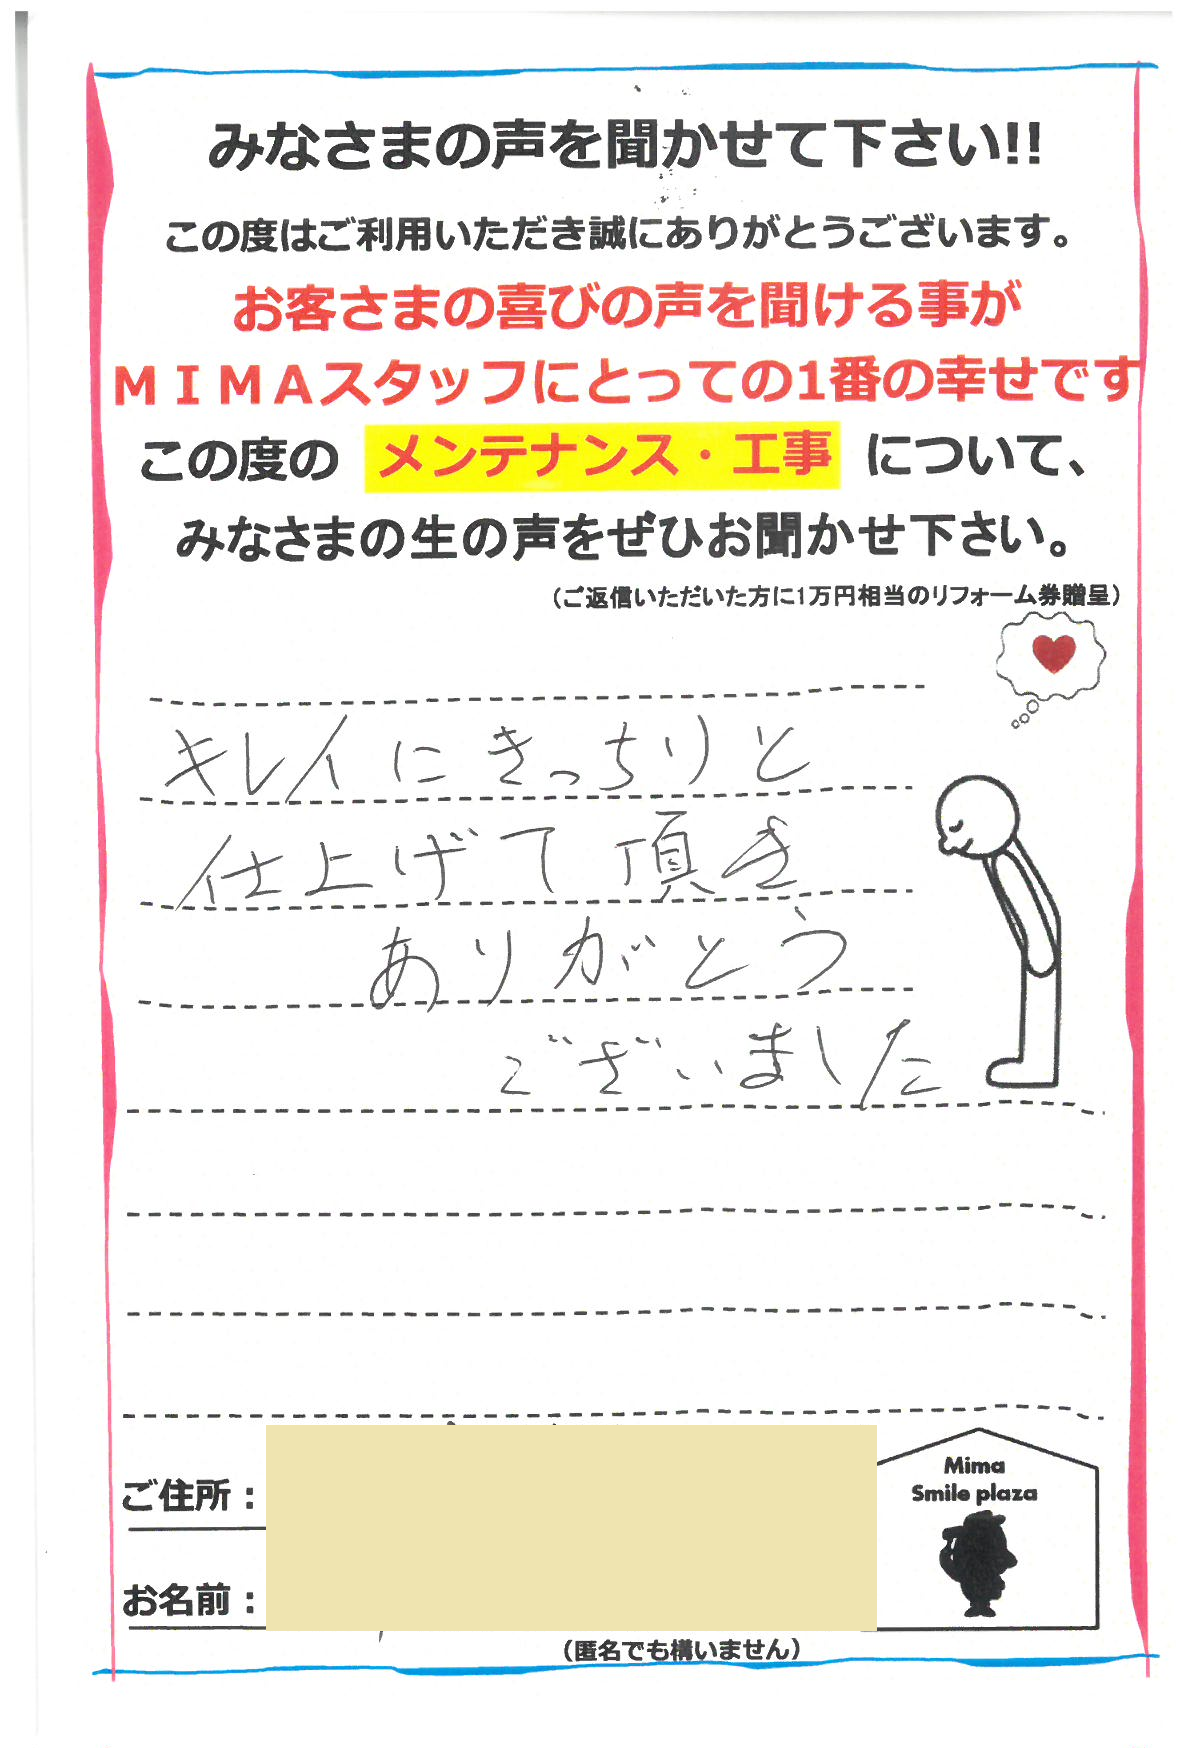 みなさまの声を聞かせて下さい!!
この度はご利用いただき誠にありがとうございます。
お客さまの喜びの声を聞ける事が
ＭＩＭＡスタッフにとっての1番の幸せです
この度の メンテナンス・工事 について、
みなさまの生の声をぜひお聞かせ下さい。
（ご返信いただいた方に1万円相当のリフォーム券贈呈）
キレイにきっちりと
仕上げて頂き
ありがとう
ございました
ご住所：
お名前：
（匿名でも構いません）
Mima
Smile plaza